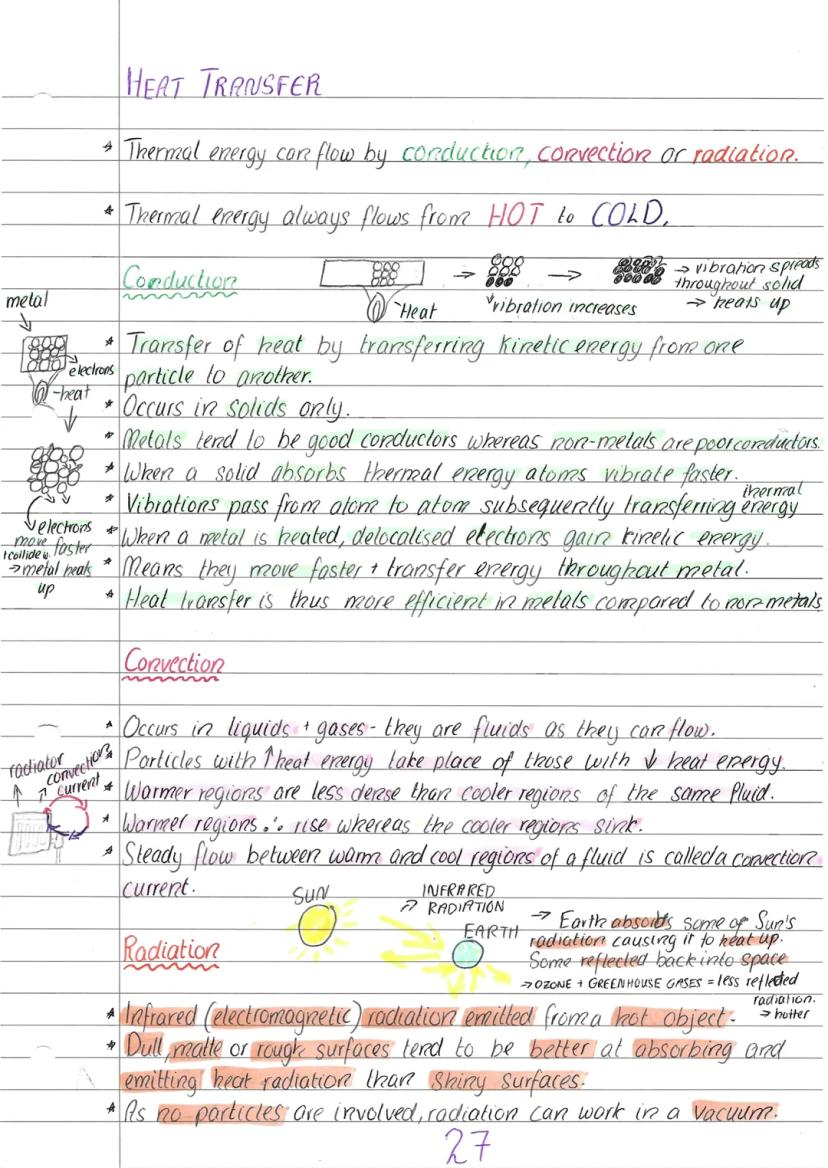 HEAT TRANSFER
* Thermal energy can flow by conduction, convection or radiation.
* Thermal energy always flows from HOT to COLD.
Conduction
Heat
→
vibration increases
→
→ vibration spreads
throughout solid
→ heats up
metal
electrons
-heat
electrons
move faster
+ collide
→ metal heats
up
* Transfer of heat by transferring kinetic energy from one
particle to another.
* Occurs in solids only.
* Metals tend to be good conductors whereas non-metals are poor conductors.
* When a solid absorbs thermal energy atoms vibrate faster.
thermal
* Vibrations pass from atom to atom subsequently transferring energy
* When a metal is heated, delocalised electrons gain kinetic energy.
* Means they move faster + transfer energy throughout metal.
* Heat transfer is thus more efficient in metals compared to non-metals
Convection
radiator
convection
current
* Occurs in liquids + gases - they are fluids as they can flow.
* Particles with ↑ heat energy take place of those with ↓ heat energy.
* Warmer regions are less dense than cooler regions of the same fluid.
* Warmer regions ∴ rise whereas the cooler regions sink.
* Steady flow between warm and cool regions of a fluid is called a convection
current.
Radiation
SUN
INFRARED
RADIATION
EARTH
→ Earth absorbs some of Sun's
radiation causing it to heat up.
Some reflected back into space
→ OZONE + GREENHOUSE GASES = less reflected
radiation.
→ hotter
* Infrared (electromagnetic) radiation emitted from a hot object.
* Dull, matte or rough surfaces tend to be better at absorbing and
emitting heat radiation than shiny surfaces.
* As no particles are involved, radiation can work in a vacuum.
27